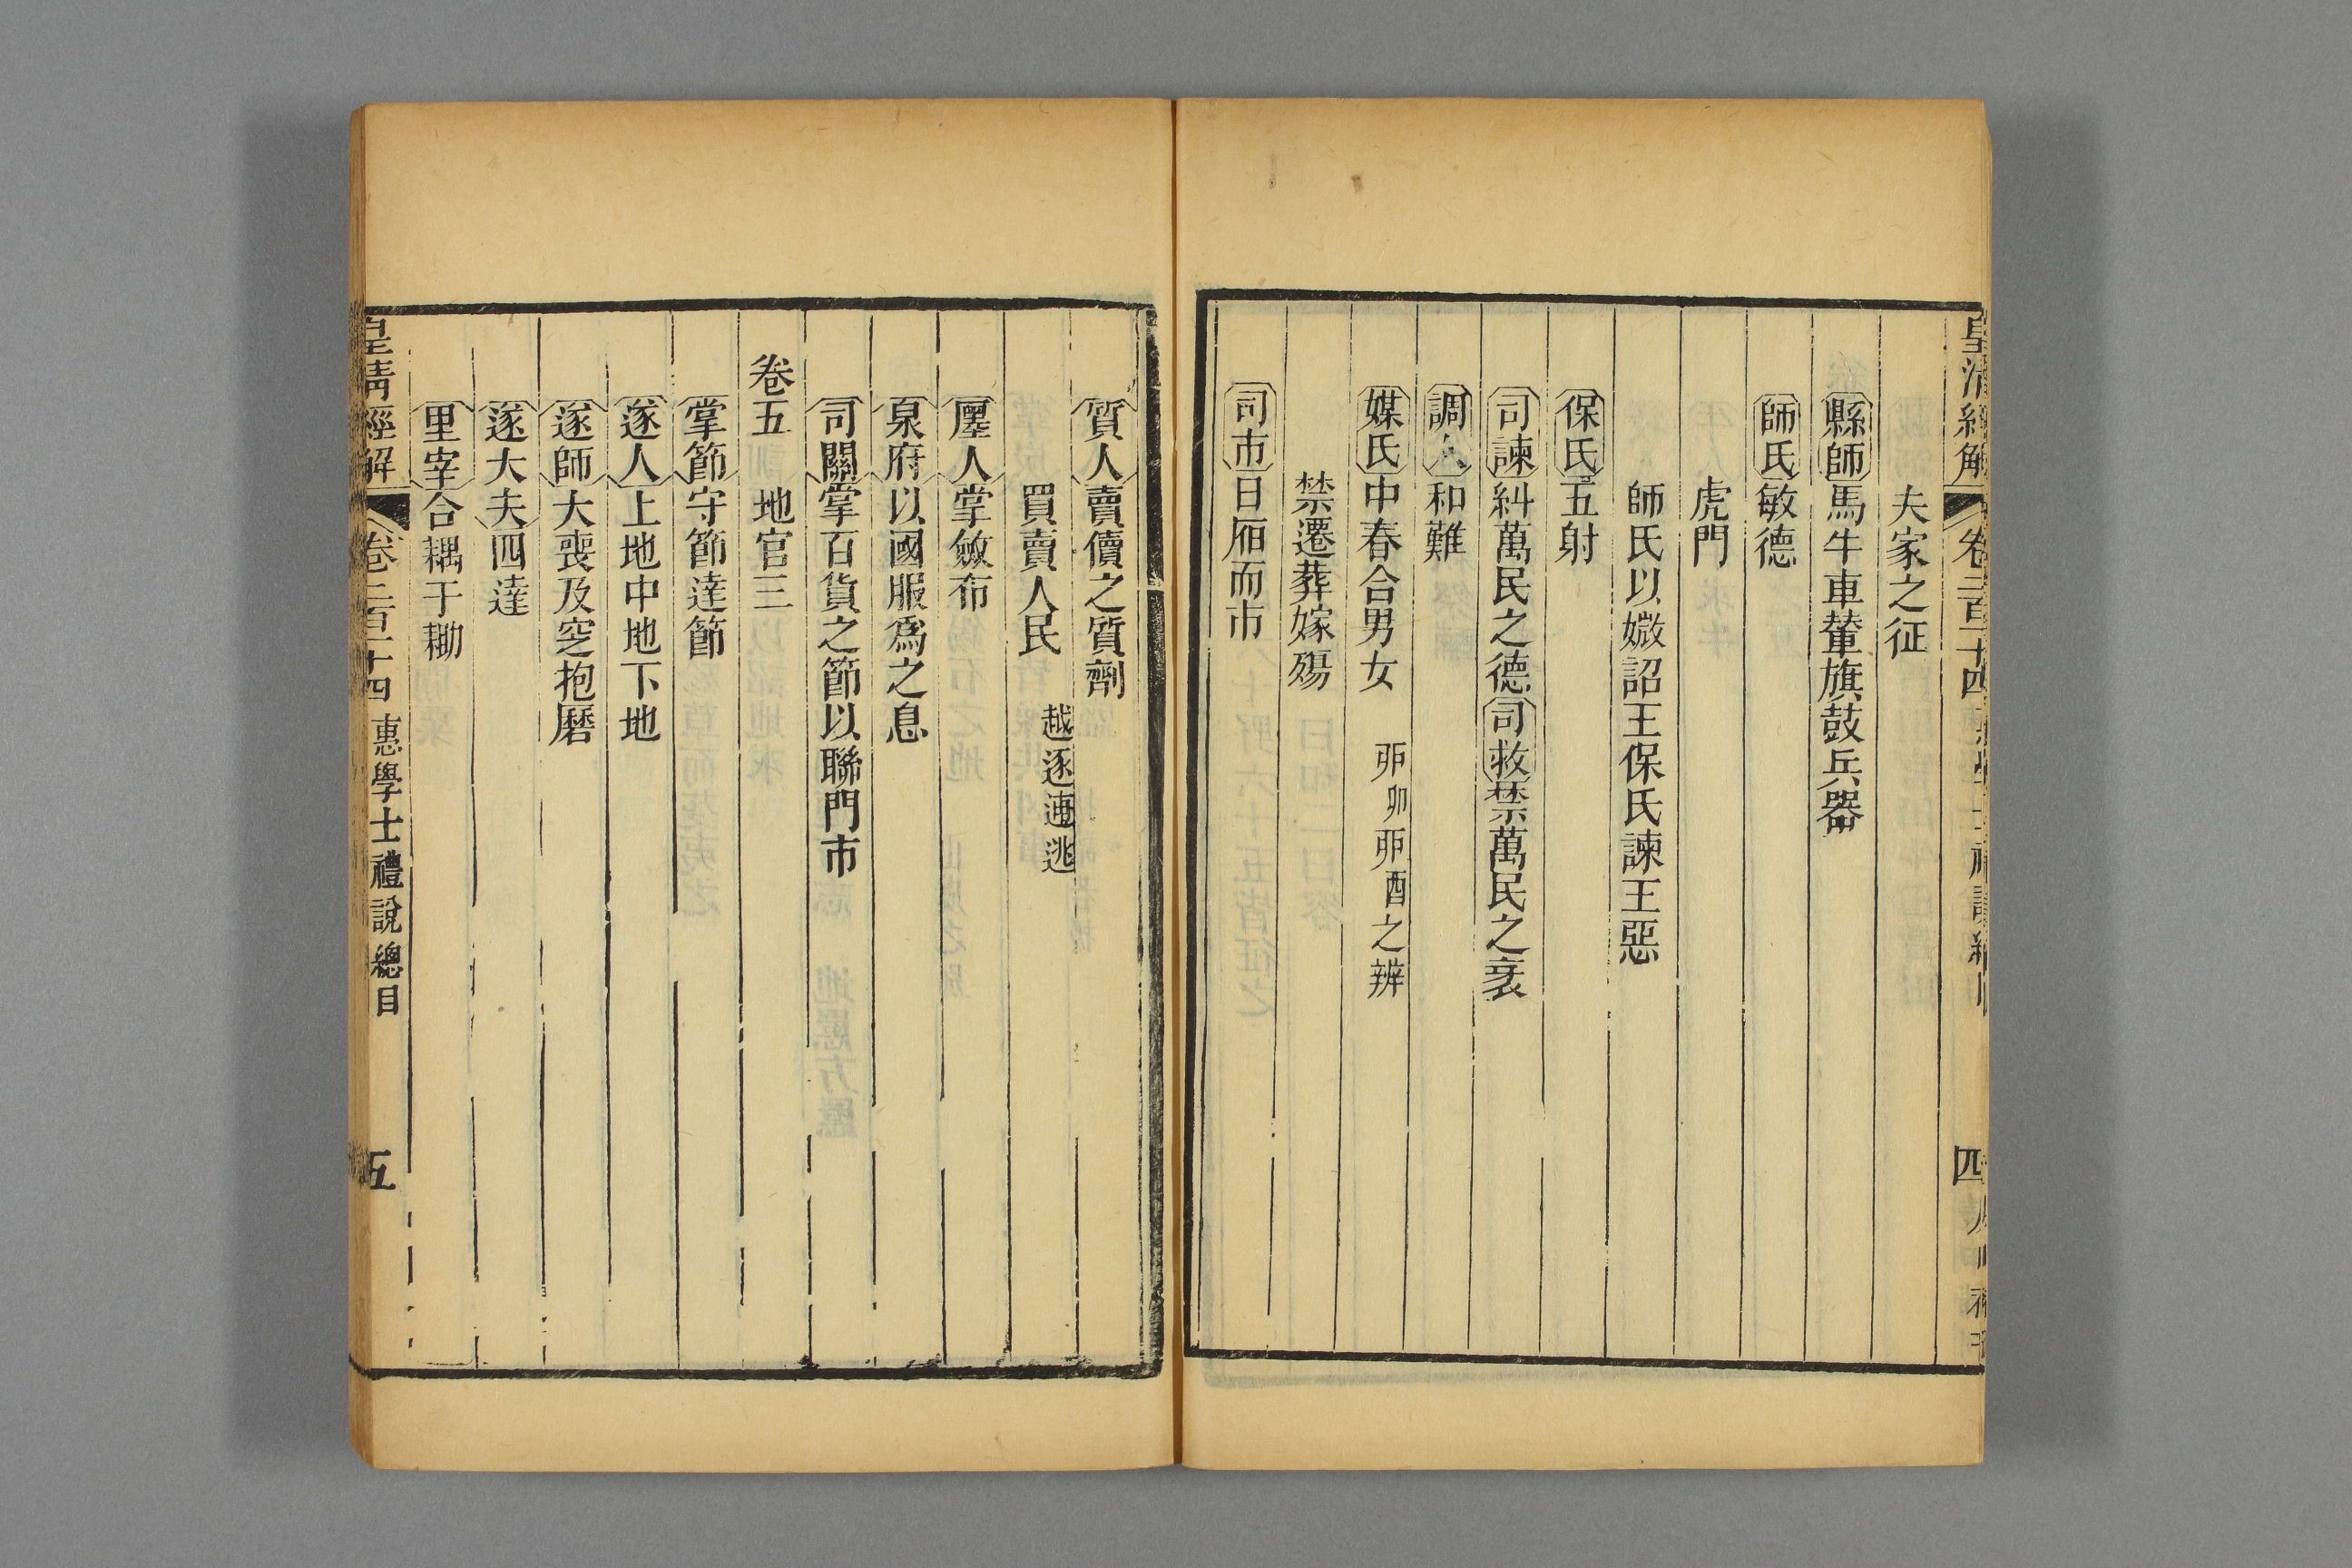 皇清經解 卷二百十四 四
夫家之征
縣師馬牛車輦旗鼓兵器
師氏敏德
虎門
師氏以媺詔王保氏諫王惡
保氏五射
司諫糾萬民之德司救禁萬民之衺
調人和難
媒氏中春合男女 丣卯丣酉之辨
禁遷葬嫁殤
司市日㕓而市
質人賣儥之質劑
買賣人民 越逐逋逃
廛人掌斂布
泉府以國服爲之息
司關掌百貨之節以聯門市
卷五 地官三
掌節守節達節
遂人上地中地下地
遂師大喪及窆抱磨
遂大夫四達
里宰合耦于耡
皇清經解 卷二百十四 惠學士禮說總目 五